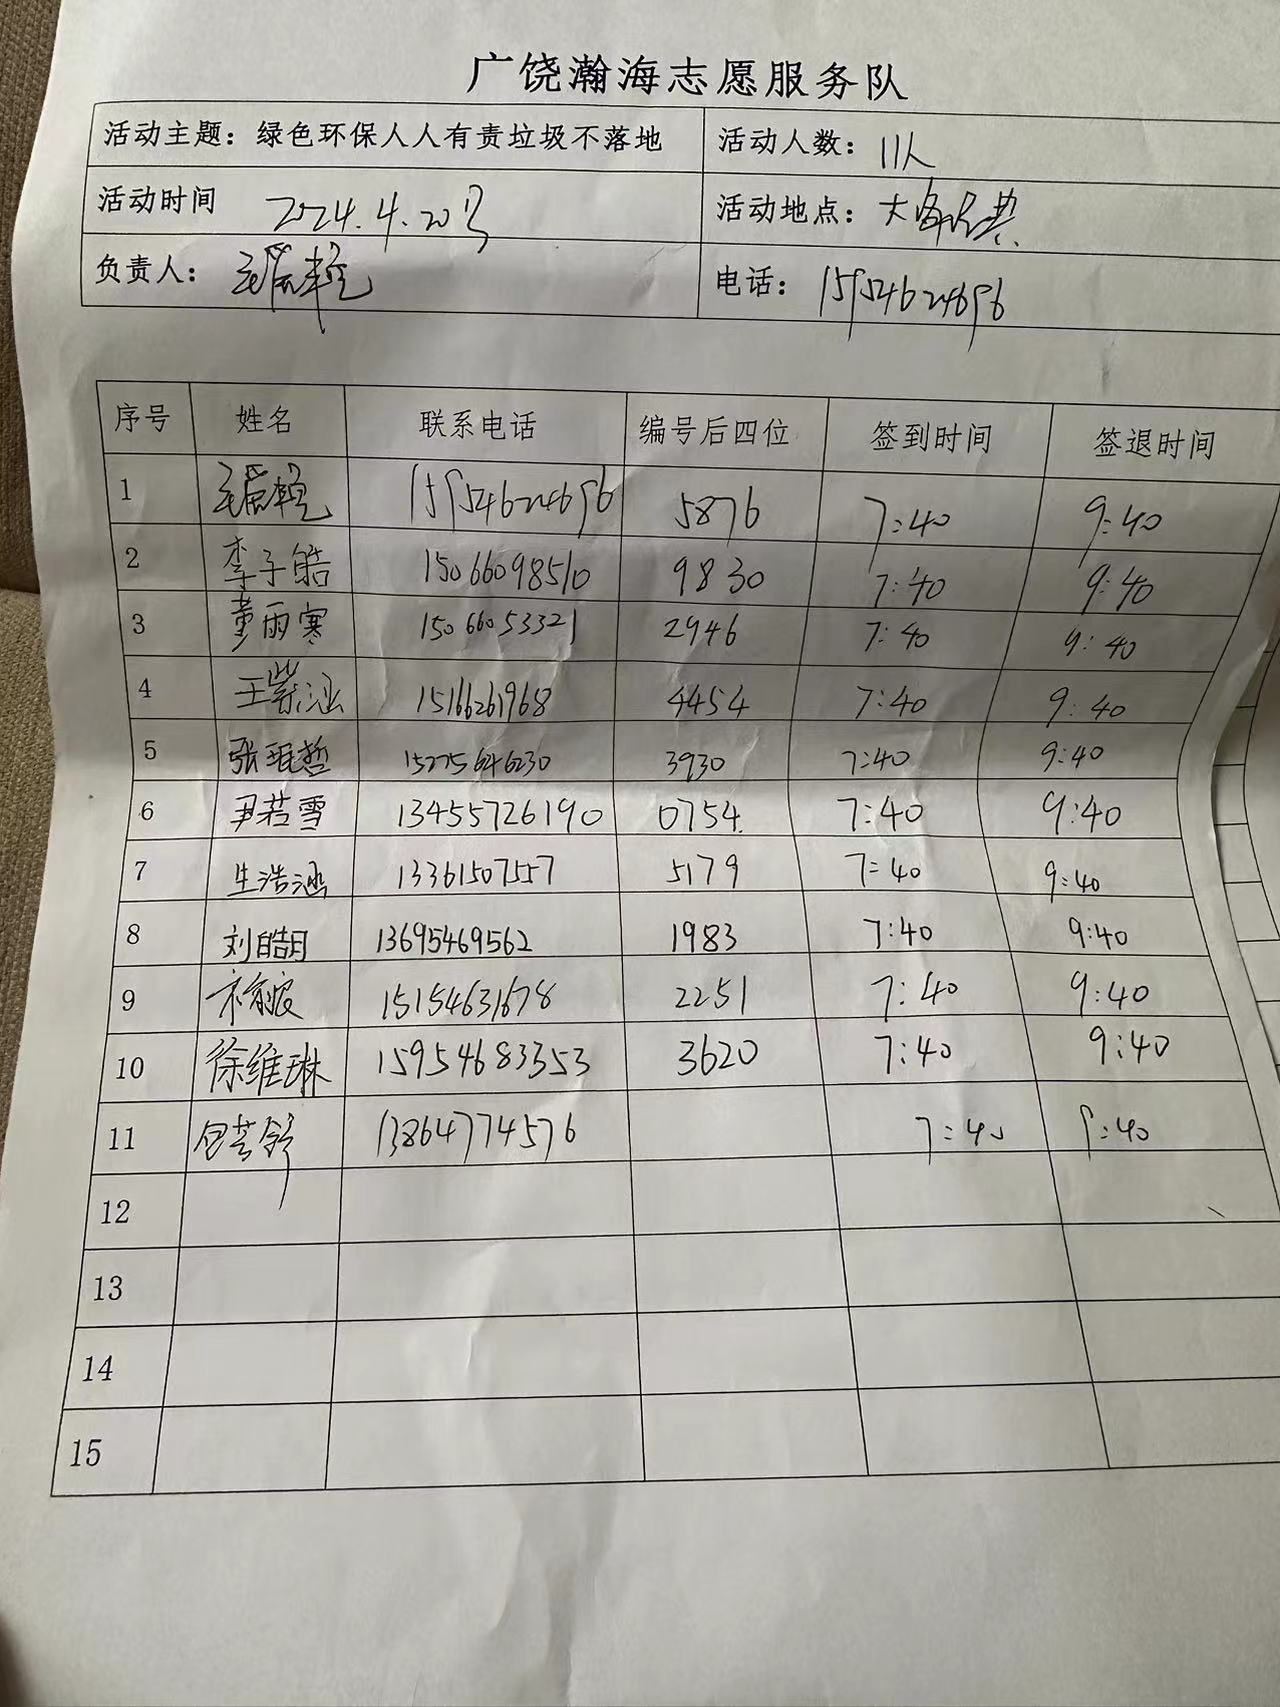 广饶瀚海志愿服务队
活动主题：绿色环保人人有责垃圾不落地 活动人数：11人
活动时间 2024.4.20号 活动地点：大
负责人： 电话：15954624696
序号 姓名 联系电话 编号后四位 签到时间 签退时间
1 15954624696 5876 7:40 9:40
2 李子皓 15066098510 9830 7:40 9:40
3 董雨寒 15066053321 2946 7:40 9:40
4 王紫涵 15166261968 4454 7:40 9:40
5 张珉哲 15275646230 3930 7:40 9:40
6 尹若雪 13455726190 0754 7:40 9:40
7 生浩涵 13361507557 5179 7:40 9:40
8 刘皓月 13695469562 1983 7:40 9:40
9 15154631678 2251 7:40 9:40
10 徐维琳 15954683353 3620 7:40 9:40
11 13864774576 7:40 9:40
12
13
14
15